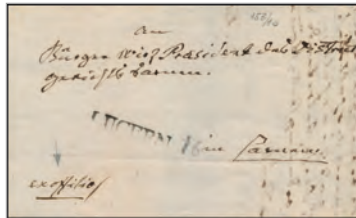 158/14
An
Bürger Vice Präsident des Distrikt
gerichts Sarnen.
LUCERN 16
in Sarnen
exoffitio